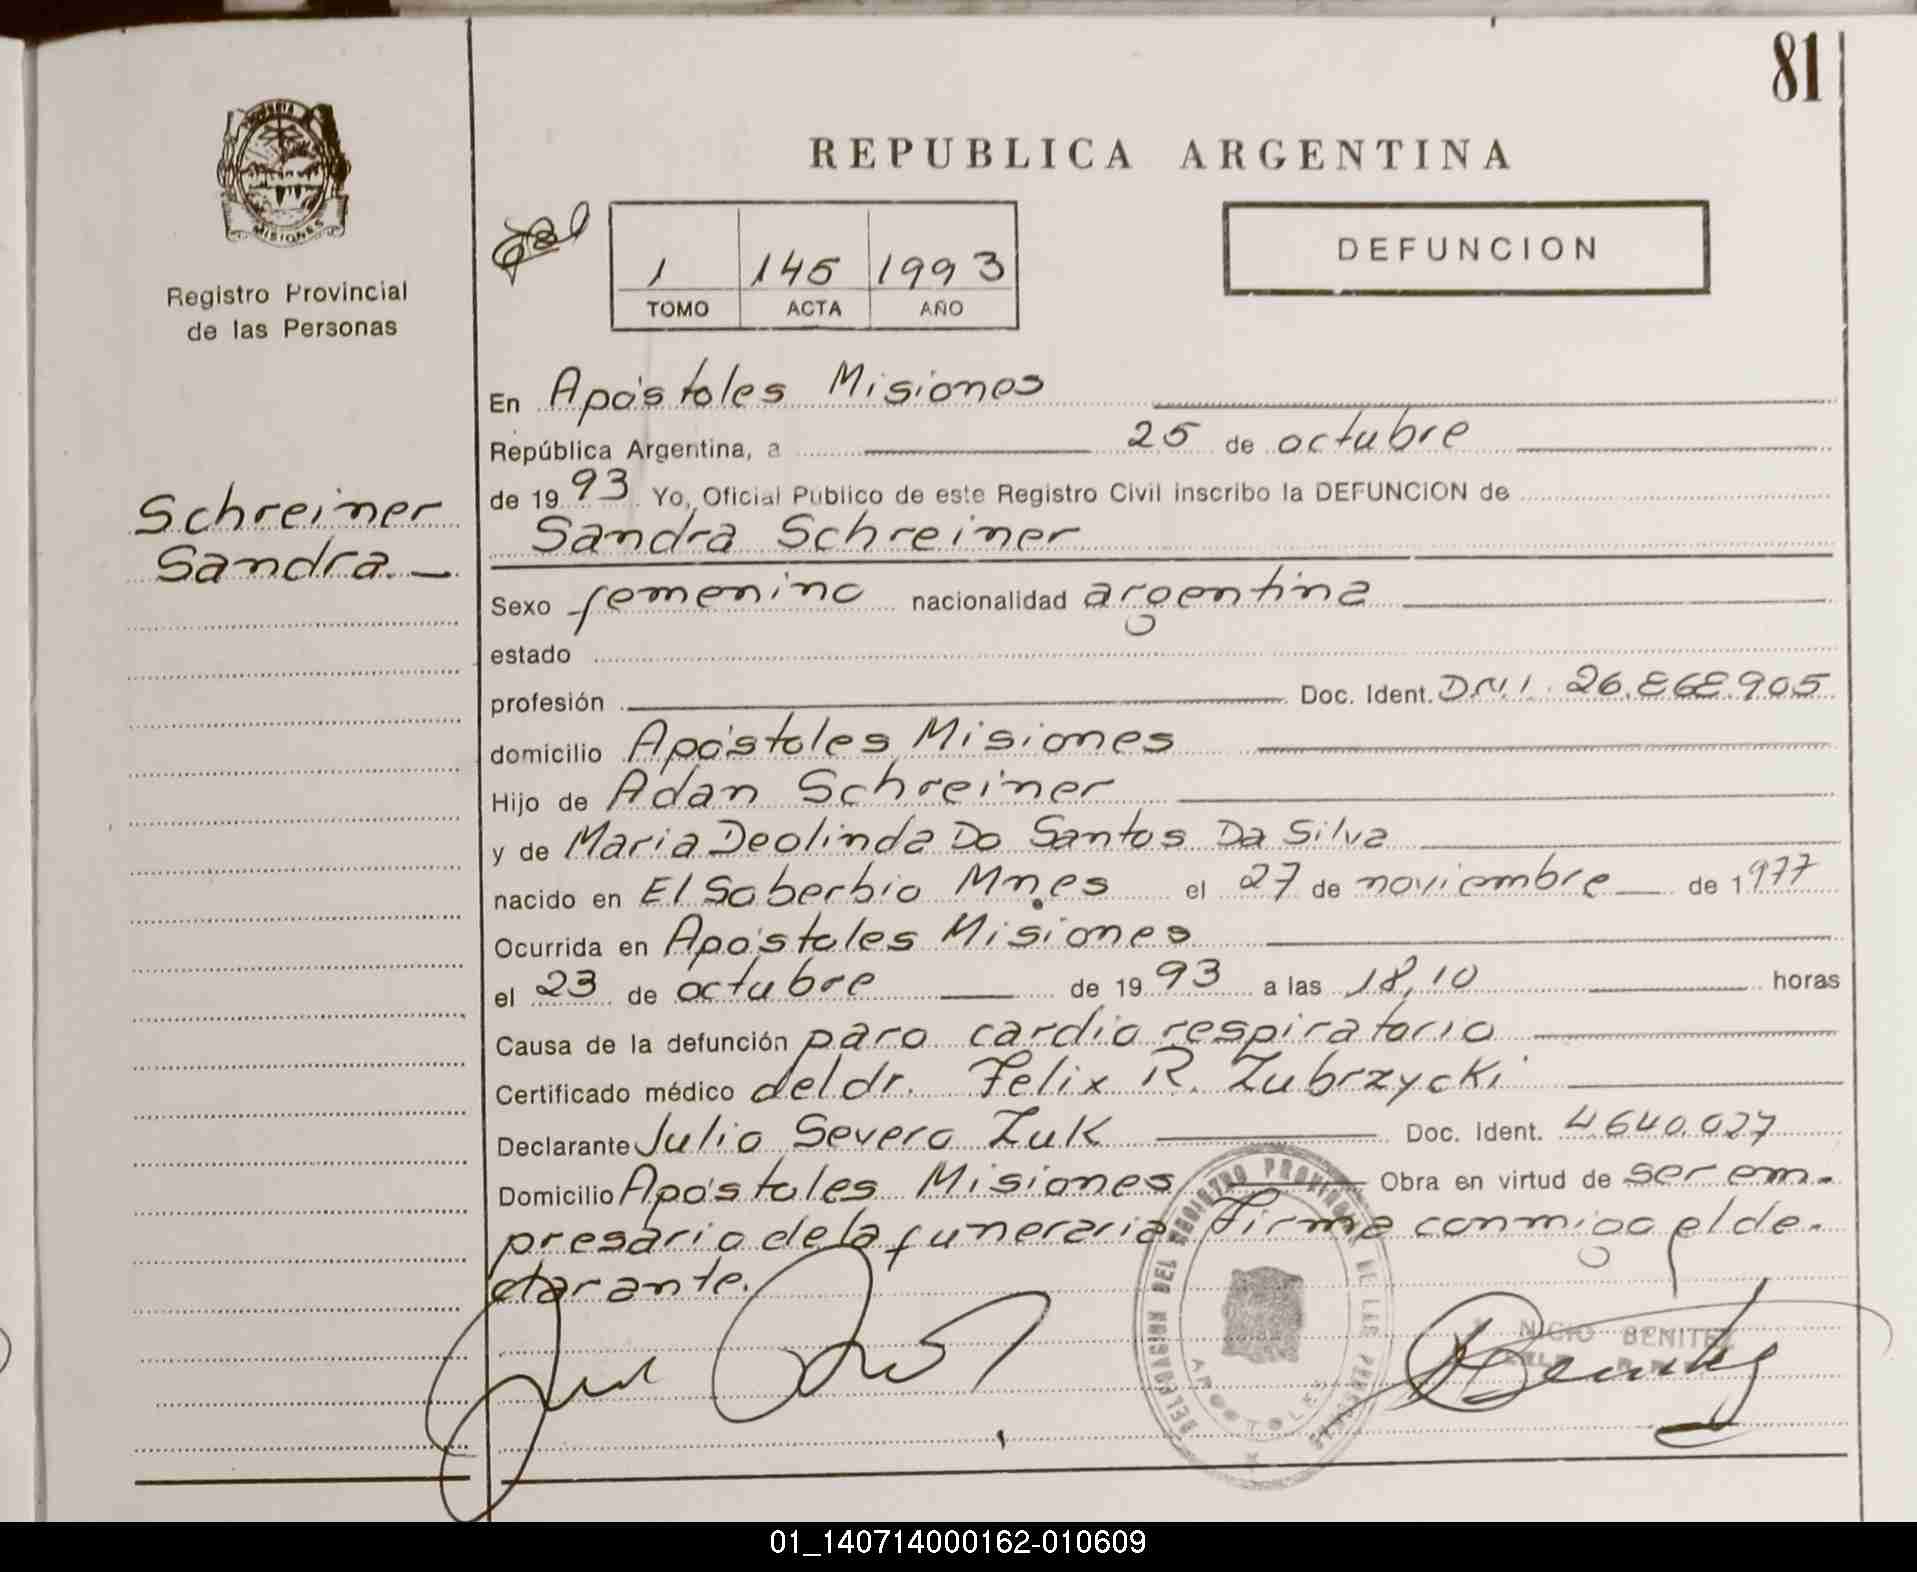 81
PROVINCIA
MISIONES
Registro Provincial
de las Personas
REPUBLICA ARGENTINA
DEFUNCION
1 145 1993
TOMO ACTA AÑO
Schreiner
Sandra.—
En Apóstoles Misiones
República Argentina, a 25 de octubre
de 19 93 Yo, Oficial Público de este Registro Civil inscribo la DEFUNCION de
Sandra Schreiner
Sexo femenino nacionalidad argentina
estado
profesión Doc. Ident. D.N.I. 26.868.905
domicilio Apóstoles Misiones
Hijo de Adan Schreiner
y de Maria Deolinda Do Santos Da Silva
nacido en El Soberbio Mnes el 27 de noviembre de 1977
Ocurrida en Apóstoles Misiones
el 23 de octubre de 19 93 a las 18,10 horas
Causa de la defunción paro cardio respiratorio
Certificado médico del dr. Felix R. Zubrzycki
Declarante Julio Severo Zuk Doc. Ident. 4.640.027
Domicilio Apóstoles Misiones Obra en virtud de ser em-
presario de la funeraria. Firma conmigo el de-
clarante.
DELEGACION DEL REGISTRO PROVINCIAL DE LAS PERSONAS
APOSTOLES
NICIO BENITEZ
01_140714000162-010609